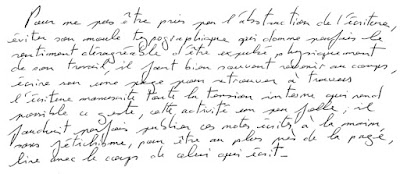 Pour ne pas être pris par l'abstraction de l'écriture,
éviter son moule typographique qui donne parfois le
sentiment désagréable d'être expulsé physiquement
de son travail, il faut bien souvent revenir au corps,
écrire sur une page pour retrouver à travers
l'écriture manuscrite toute la tension interne qui rend
possible ce geste, cette activité un peu folle; il
faudrait parfois publier ces notes écrites à la main
sans fétichisme, pour être au plus près de la page,
lire avec le corps de celui qui écrit_